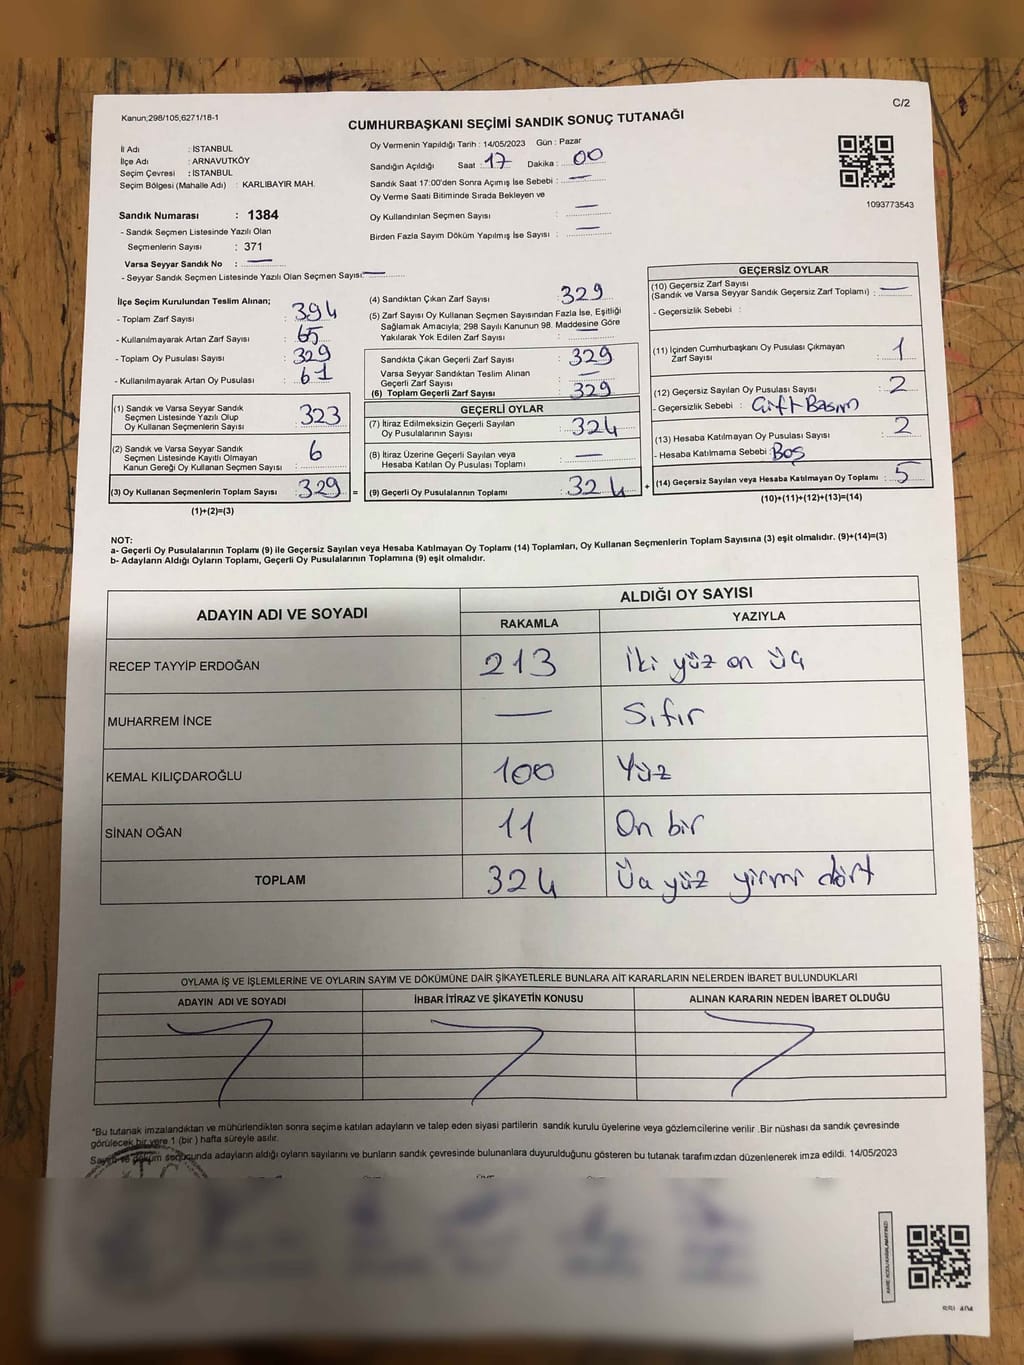 C/2
Kanun;298/105,6271/18-1
CUMHURBAŞKANI SEÇİMİ SANDIK SONUÇ TUTANAĞI
İl Adı : İSTANBUL
İlçe Adı : ARNAVUTKÖY
Seçim Çevresi : İSTANBUL
Seçim Bölgesi (Mahalle Adı) : KARLIBAYIR MAH.
Sandık Numarası : 1384
- Sandık Seçmen Listesinde Yazılı Olan
Seçmenlerin Sayısı : 371
Varsa Seyyar Sandık No : —
- Seyyar Sandık Seçmen Listesinde Yazılı Olan Seçmen Sayısı: —
Oy Vermenin Yapıldığı Tarih : 14/05/2023 Gün : Pazar
Sandığın Açıldığı Saat : 17 Dakika : 00
Sandık Saat 17:00'den Sonra Açımış İse Sebebi : —
Oy Verme Saati Bitiminde Sırada Bekleyen ve
Oy Kullandırılan Seçmen Sayısı : —
Birden Fazla Sayım Döküm Yapılmış İse Sayısı : —
1093773543
İlçe Seçim Kurulundan Teslim Alınan;
- Toplam Zarf Sayısı : 394
- Kullanılmayarak Artan Zarf Sayısı : 65
- Toplam Oy Pusulası Sayısı : 329
- Kullanılmayarak Artan Oy Pusulası : 61
(1) Sandık ve Varsa Seyyar Sandık
Seçmen Listesinde Yazılı Olup
Oy Kullanan Seçmenlerin Sayısı : 323
(2) Sandık ve Varsa Seyyar Sandık
Seçmen Listesinde Kayıtlı Olmayan
Kanun Gereği Oy Kullanan Seçmen Sayısı : 6
(3) Oy Kullanan Seçmenlerin Toplam Sayısı : 329 =
(1)+(2)=(3)
(4) Sandıktan Çıkan Zarf Sayısı : 329
(5) Zarf Sayısı Oy Kullanan Seçmen Sayısından Fazla İse, Eşitliği
Sağlamak Amacıyla; 298 Sayılı Kanunun 98. Maddesine Göre
Yakılarak Yok Edilen Zarf Sayısı : —
Sandıkta Çıkan Geçerli Zarf Sayısı : 329
Varsa Seyyar Sandıktan Teslim Alınan
Geçerli Zarf Sayısı : —
(6) Toplam Geçerli Zarf Sayısı : 329
GEÇERLİ OYLAR
(7) İtiraz Edilmeksizin Geçerli Sayılan
Oy Pusulalarının Sayısı : 324
(8) İtiraz Üzerine Geçerli Sayılan veya
Hesaba Katılan Oy Pusulası Toplamı : —
(9) Geçerli Oy Pusulalarının Toplamı : 324 +
GEÇERSİZ OYLAR
(10) Geçersiz Zarf Sayısı
(Sandık ve Varsa Seyyar Sandık Geçersiz Zarf Toplamı) : —
- Geçersizlik Sebebi :
(11) İçinden Cumhurbaşkanı Oy Pusulası Çıkmayan
Zarf Sayısı : 1
(12) Geçersiz Sayılan Oy Pusulası Sayısı : 2
- Geçersizlik Sebebi : Çift Basım
(13) Hesaba Katılmayan Oy Pusulası Sayısı : 2
- Hesaba Katılmama Sebebi : Boş
(14) Geçersiz Sayılan veya Hesaba Katılmayan Oy Toplamı : 5
(10)+(11)+(12)+(13)=(14)
NOT:
a- Geçerli Oy Pusulalarının Toplamı (9) ile Geçersiz Sayılan veya Hesaba Katılmayan Oy Toplamı (14) Toplamları, Oy Kullanan Seçmenlerin Toplam Sayısına (3) eşit olmalıdır. (9)+(14)=(3)
b- Adayların Aldığı Oyların Toplamı, Geçerli Oy Pusulalarının Toplamına (9) eşit olmalıdır.
ADAYIN ADI VE SOYADI ALDIĞI OY SAYISI
RAKAMLA YAZIYLA
RECEP TAYYİP ERDOĞAN 213 İki yüz on üç
MUHARREM İNCE — Sıfır
KEMAL KILIÇDAROĞLU 100 Yüz
SİNAN OĞAN 11 On bir
TOPLAM 324 Üç yüz yirmi dört
OYLAMA İŞ VE İŞLEMLERİNE VE OYLARIN SAYIM VE DÖKÜMÜNE DAİR ŞİKAYETLERLE BUNLARA AİT KARARLARIN NELERDEN İBARET BULUNDUKLARI
ADAYIN ADI VE SOYADI İHBAR İTİRAZ VE ŞİKAYETİN KONUSU ALINAN KARARIN NEDEN İBARET OLDUĞU
*Bu tutanak imzalandıktan ve mühürlendikten sonra seçime katılan adayların ve talep eden siyasi partilerin sandık kurulu üyelerine veya gözlemcilerine verilir .Bir nüshası da sandık çevresinde
görülecek bir yere 1 (bir ) hafta süreyle asılır.
Sayım ve döküm sonucunda adayların aldığı oyların sayılarını ve bunların sandık çevresinde bulunanlara duyurulduğunu gösteren bu tutanak tarafımızdan düzenlenerek imza edildi. 14/05/2023